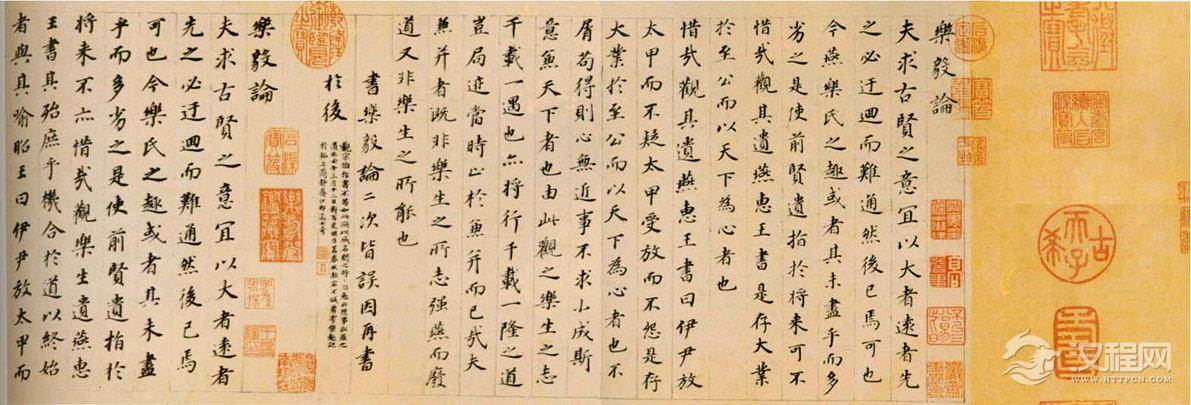 樂毅論
夫求古賢之意宜以大者遠者先
之必迂迴而難通然後已焉可也
今燕樂氏之趣或者其未盡乎而多
劣之是使前賢遺拍於将来可不
惜哉觀其遺燕惠王書是存大業
於至公而以天下為心者也
惜哉觀其遺燕惠王書曰伊尹放
太甲而不疑太甲受放而不怨是存
大業於至公而以天下為心者也不
屑苟得則心無近事不求小成斯
意兼天下者也由此觀之樂生之志
千載一遇也亦将行千載一隆之道
豈局迹當時止於兼并而已哉夫
兼并者既非樂生之所志强燕而廢
道又非樂生之所能也
書樂毅論二次皆誤因再書
於後
樂毅論
夫求古賢之意宜以大者遠者
先之必迂迴而難通然後已焉
可也今樂氏之趣或者其未盡
乎而多劣之是使前賢遺拍於
将来不亦惜哉觀樂生遺燕惠
王書其殆庶乎機合於道以終始
者與其喻昭王曰伊尹放太甲而
古希天子
汉程网
WWW.HTTPCN.COM